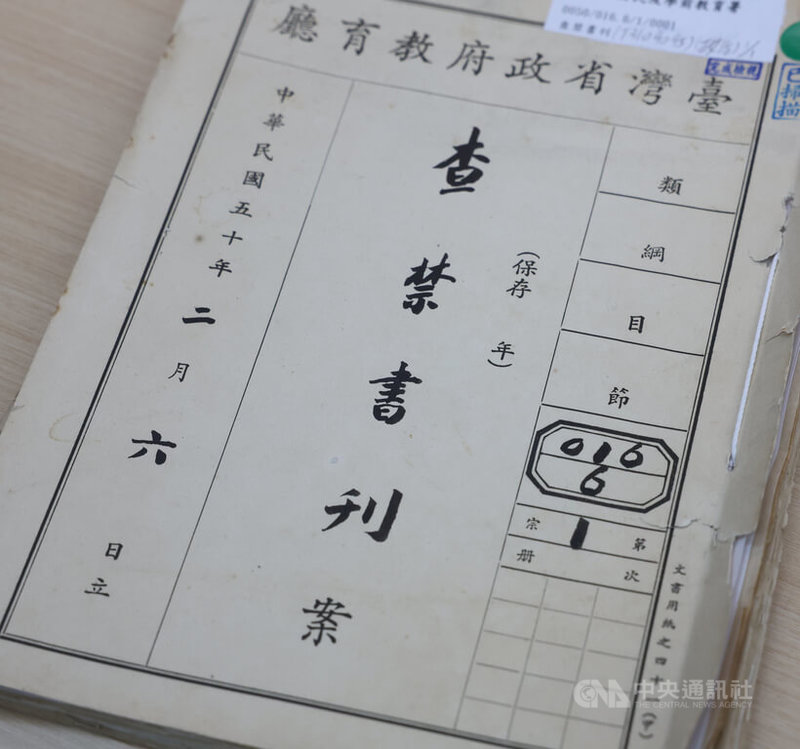 0050/016.6/1/0001
臺灣省政府教育廳
完成檢視
已掃描
類
綱
目
節
016
6
第1宗
次 册
(保存 年)
查禁書刊案
中華民國五十年二月六日立
文書用紙之四
(甲)
CNA 中央通訊社
THE CENTRAL NEWS AGENCY